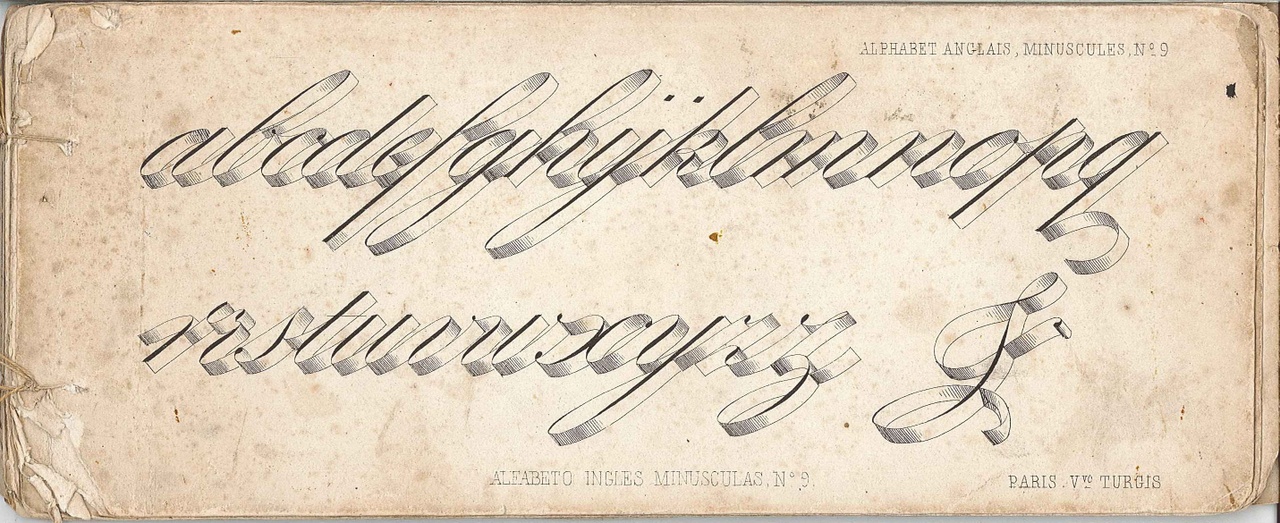 ALPHABET ANGLAIS, MINUSCULES, Nº 9
abcdefghijklmnopq
rrstuvwxyzz &
ALFABETO INGLES MINUSCULAS, Nº 9.
PARIS . Vve TURGIS